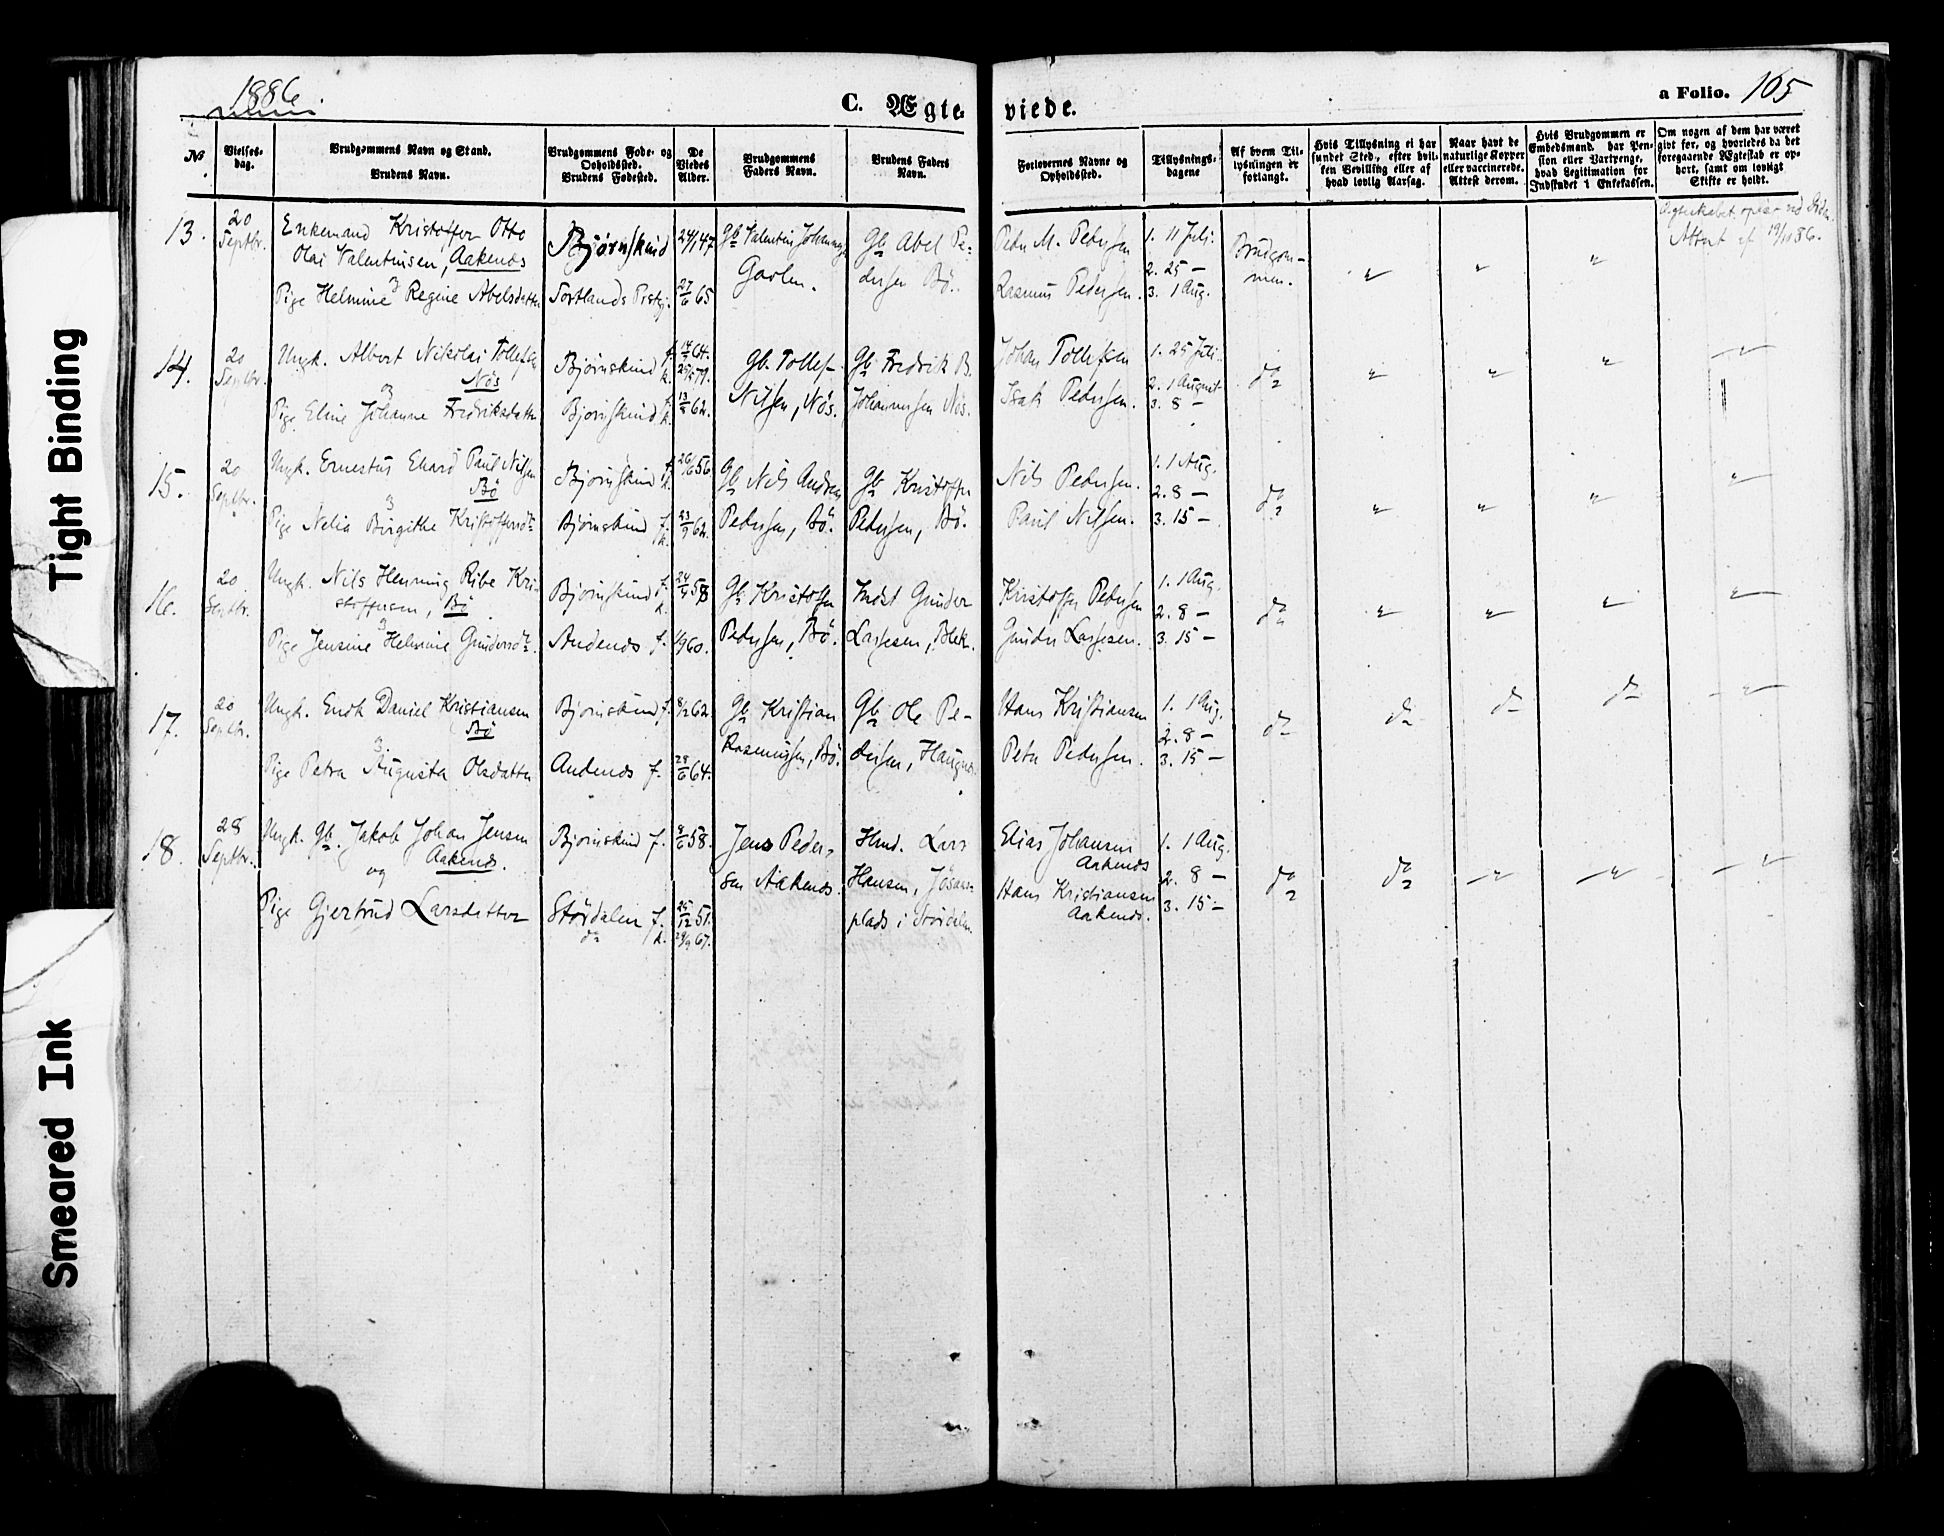 Tight Binding
Smeared Ink
1886
C. Ægte-
viede.
a Folio. 105
No.
Vielses-
dag.
Brudgommens Navn og Stand.
Brudens Navn.
Brudgommens Føde- og
Opholdssted.
Brudens Fødested.
De
Viedes
Alder.
Brudgommens
Faders Navn.
Brudens Faders
Navn.
Forlovernes Navne og
Opholdssted.
Tillysnings-
dagene
Af hvem Til-
lysningen er
forlangt.
Hvis Tillysning ei har
fundet Sted, efter hvil-
ken Bevilling eller af
hvad lovlig Aarsag.
Naar havt de
naturlige Kopper
eller vaccinerede.
Attest derom.
Hvis Brudgommen er
Embedsmand, har Pen-
sion eller Vartpenge,
hvad Legitimation for
Indskudet i Enkekassen.
Om nogen af dem har været
givt før, og hvorledes da det
foregaaende Ægteskab er op-
hørt, samt om lovligt
Skifte er holdt.
13.
20
Septbr.
Enkemand Kristoffer Otto
Olai Valentinsen, Aakenes
Pige Helmine Regine Abelsdatter
Bjørnskind
Sortlands Prstgj.
24/1 47
27/6 65
Gb. Valentin Johannes
Gavlen.
Gb. Abel Pe-
dersen Bø.
Peder M. Pedersen
Rasmus Pedersen.
1. 11 Juli.
2. 25 —
3. 1 Aug.
Brudgom-
men.
"
"
"
Attest af 19/10 86.
14.
20
Septbr.
Ungk. Albert Nikolai Tollefsen
Nøs
Pige Eline Johanne Fredriksdatter
Bjørnskind f. k.
Bjørnskind f. k.
64.
79.
62.
Gb. Tollef
Nilsen, Nøs.
Gb. Fredrik B.
Johannessen Nøs.
Johan Tollefsen
Isak Pedersen.
1. 25 Juli.
2. 1 August
3. 8 —
do
"
"
"
"
15.
20
Septbr.
Ungk. Ernestus Ehard Paul Nilsen
Bø
Pige Nelia Birgithe Kristoffersdtr.
Bjørnskind f. k.
Bjørnskind f. k.
26/6 56
23/9 62.
Gb. Nils Andreas
Pedersen, Bø.
Gb. Kristoffer
Pedersen, Bø.
Nils Pedersen.
Paul Nilsen.
1. 1 Aug.
2. 8 —
3. 15 —
do
"
"
"
"
16.
20
Septbr.
Ungk. Nils Henning Ribe Kri-
stoffersen, Bø
Pige Jensine Helmine Gundersdtr.
Bjørnskind f. k.
Andenes f.
58
60.
Gb. Kristoffer
Pedersen, Bø.
Indst Gunder
Lassesen, Blek.
Kristoffer Pedersen
Gunder Lassesen.
1. 1 Aug.
2. 8 —
3. 15 —
do
"
"
"
"
17.
20
Septbr.
Ungk. Enok Daniel Kristiansen
Bø
Pige Petra Augusta Olsdatter
Bjørnskind f.
Andenes f.
8/2 62.
28/6 64.
Gb. Kristian
Rasmussen, Bø.
Gb. Ole Pe-
dersen, Haugnes
Hans Kristiansen
Peter Pedersen.
1. 1 Aug.
2. 8 —
3. 15 —
do
do
do
do
"
18.
28
Septbr.
Ungk. Gb. Jakob Johan Jensen
Aakenes.
og
Pige Gjertrud Larsdatter
Bjørnskind f.
Størdalen f.
do k.
8/6 58.
25/12 51.
29/9 67.
Jens Peder-
sen Aakenes.
Hmd. Lars
Hansen, Jösaas-
plads i Størdalen
Elias Johansen
Aakenes
Hans Kristiansen
Aakenes.
1. 1 Aug.
2. 8 —
3. 15 —
do
do
"
"
"